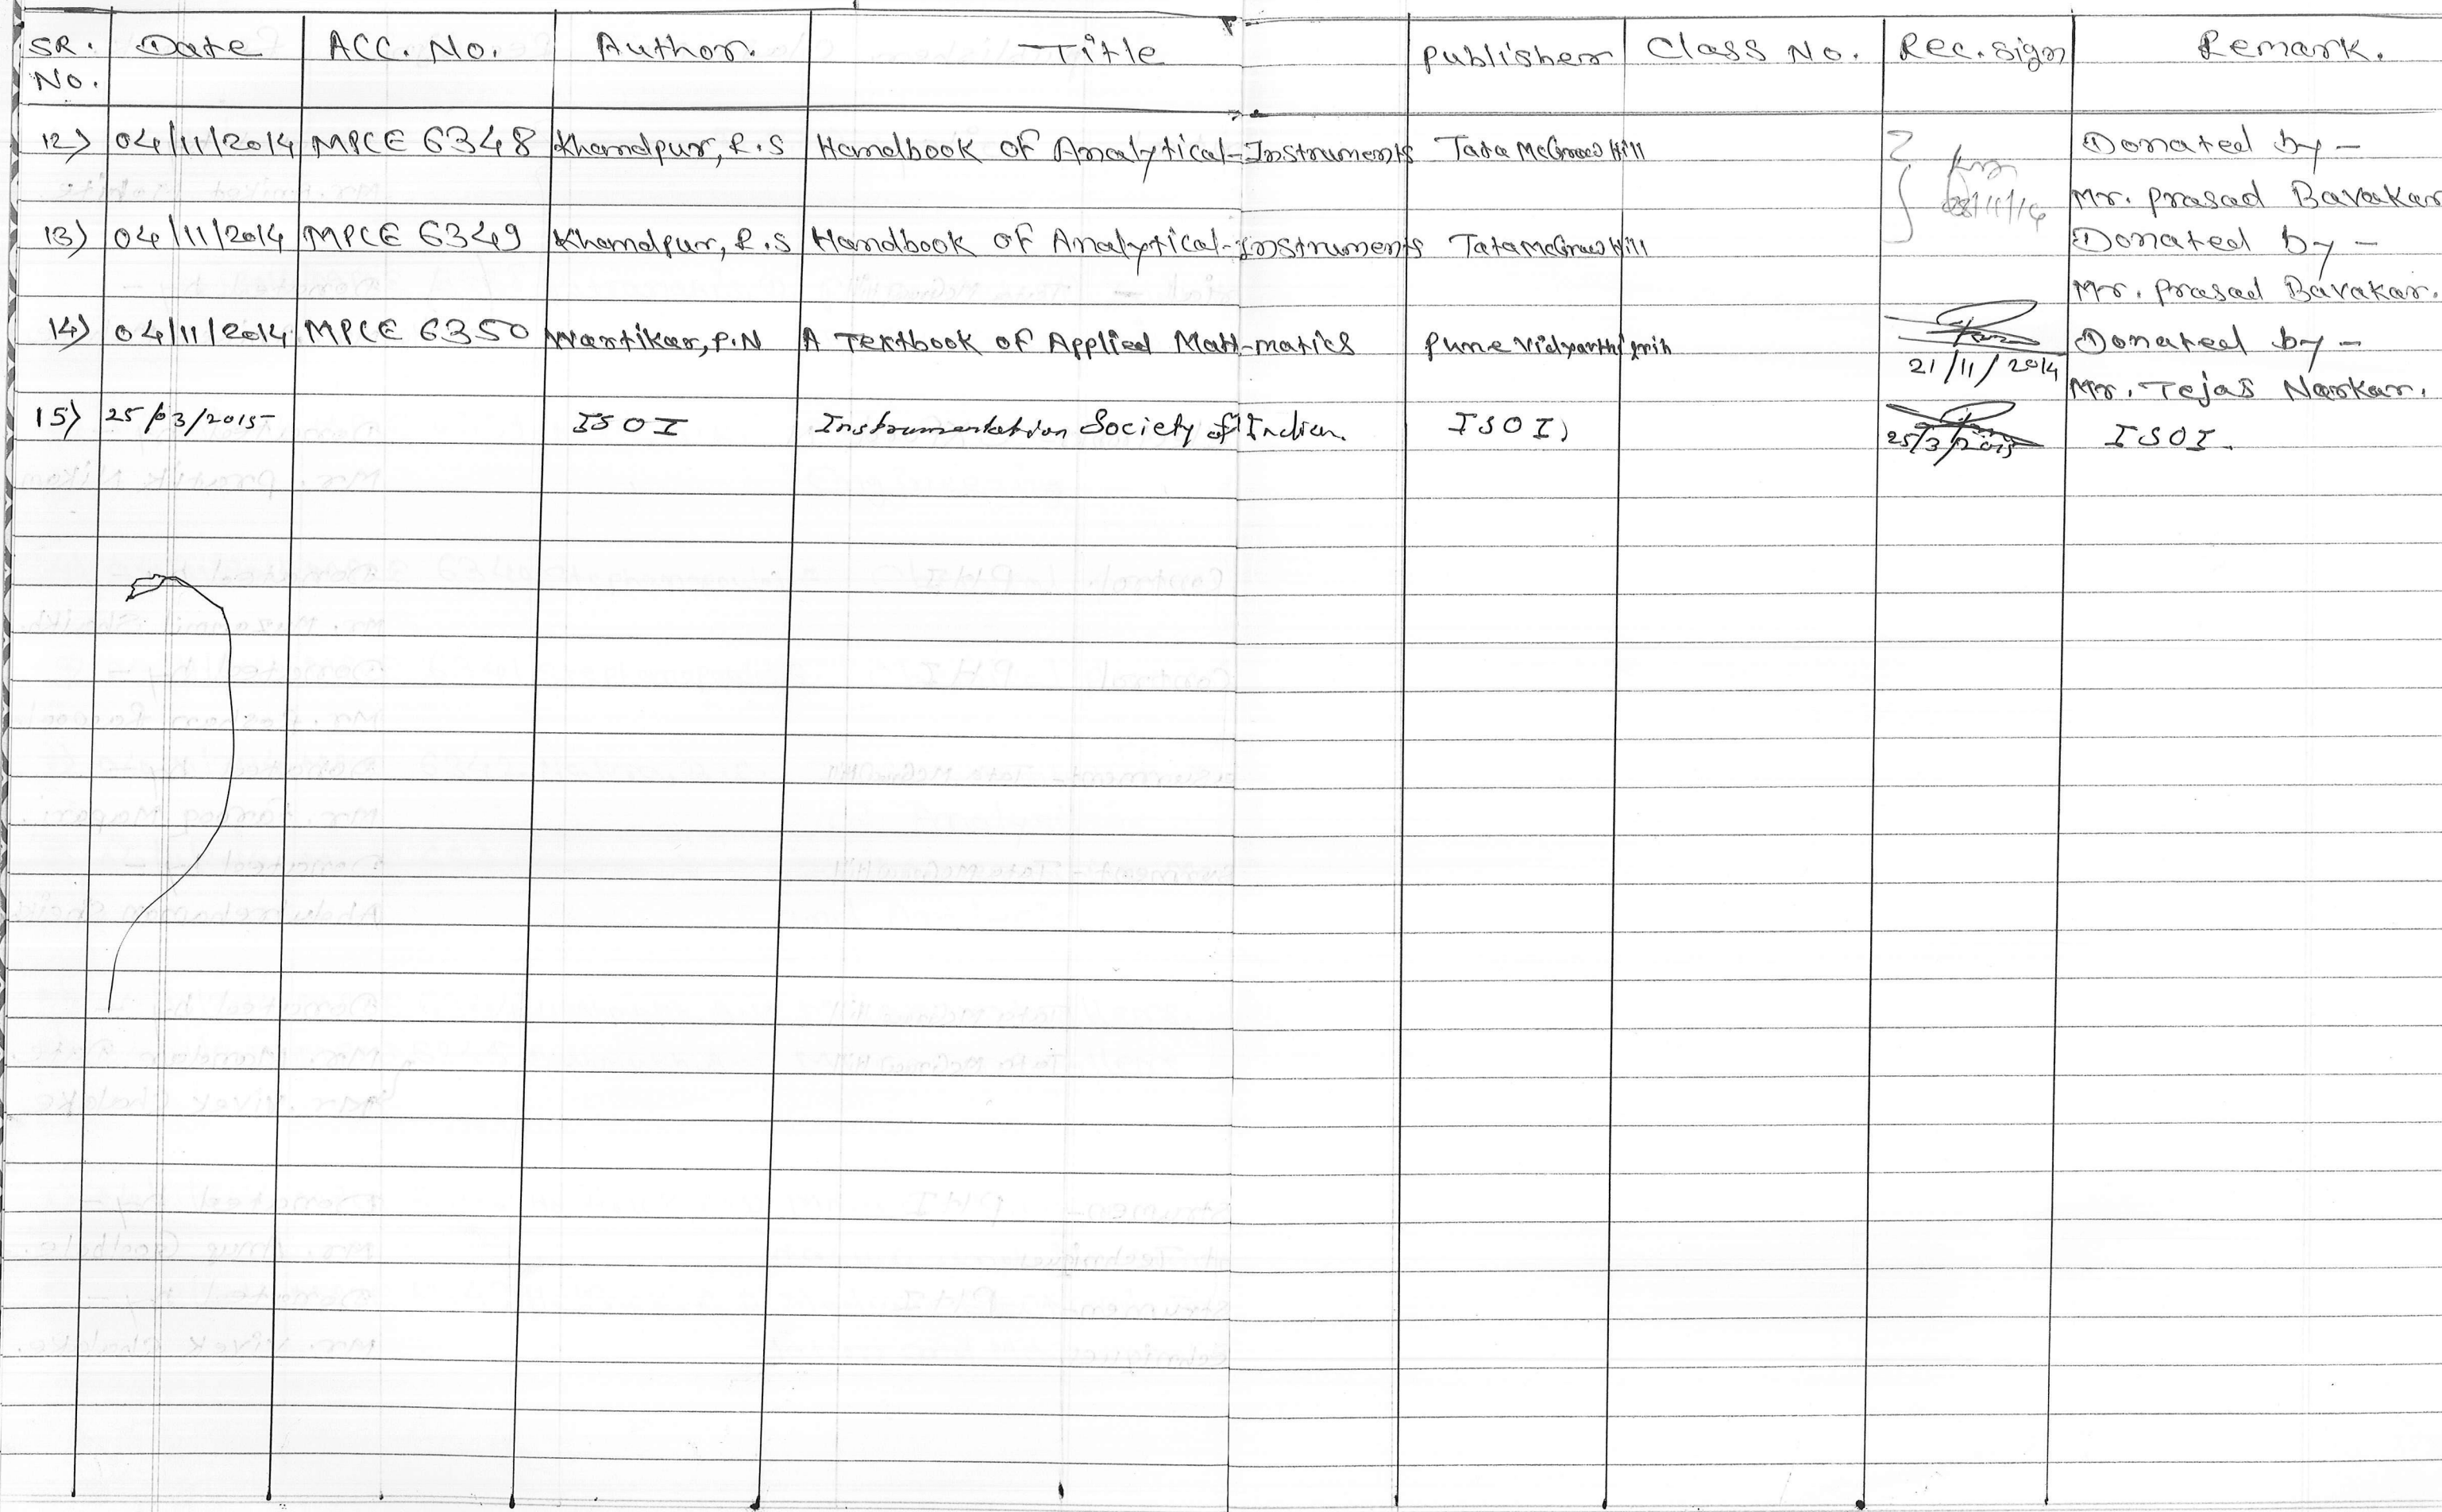 SR. No. Date ACC. No. Author. Title Publisher Class No. Rec.sign Remark.
12) 04/11/2014 MPCE 6348 Khandpur, R.S Handbook of Analytical-Instruments Tata McGraw Hill Donated by -
Mr. Prasad Bavakar
13) 04/11/2014 MPCE 6349 Khandpur, R.S Handbook of Analytical-Instruments Tata McGraw Hill Donated by -
Mr. Prasad Bavakar.
14) 04/11/2014 MPCE 6350 Wartikar, P.N A Textbook of Applied Math-matics Pune Vidyarthi grih Donated by -
21/11/2014 Mr. Tejas Narkar.
15) 25/03/2015 ISOI Instrumentation Society of Indian. ISOI) 25/3/2015 ISOI.